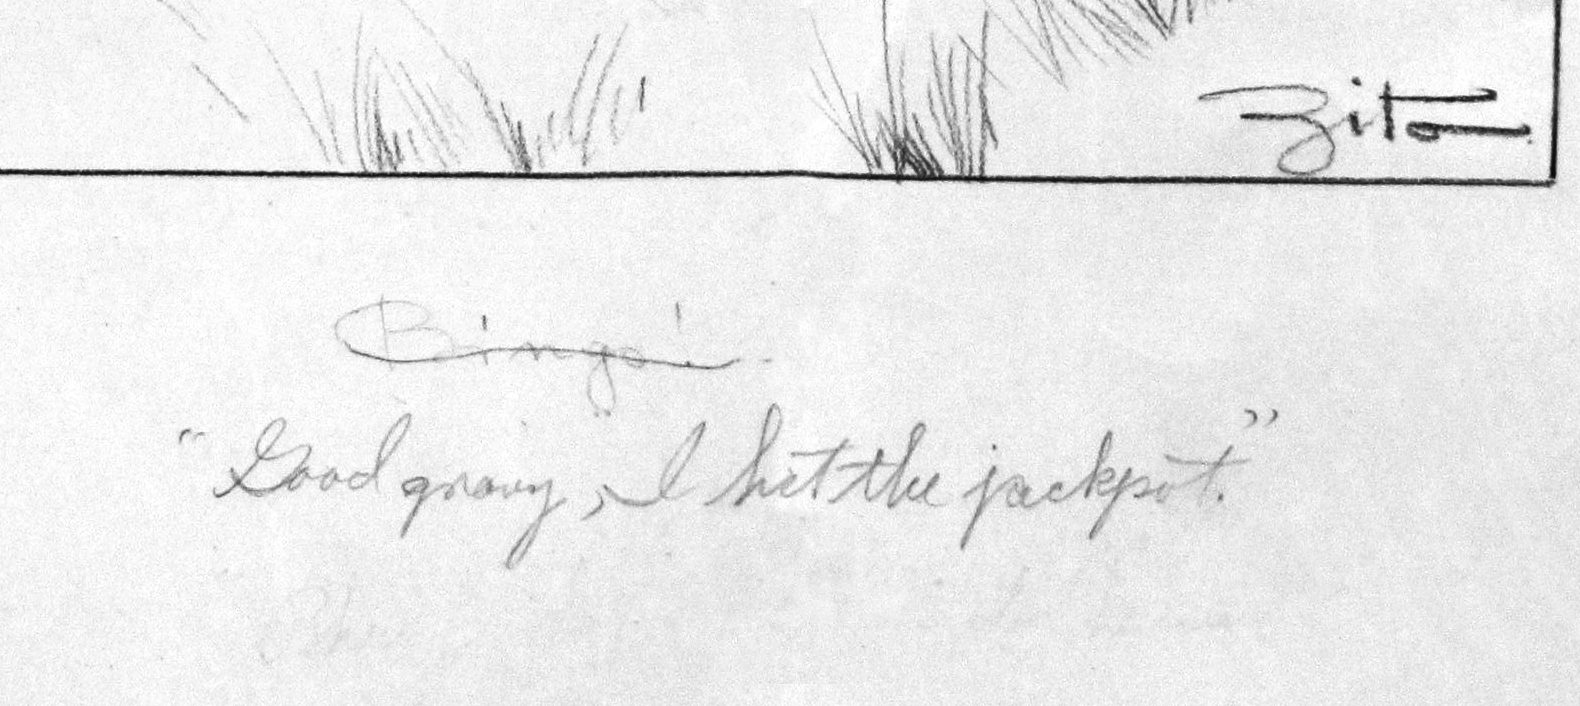 Zito
Bingo!
"Good gravy, I hit the jackpot."